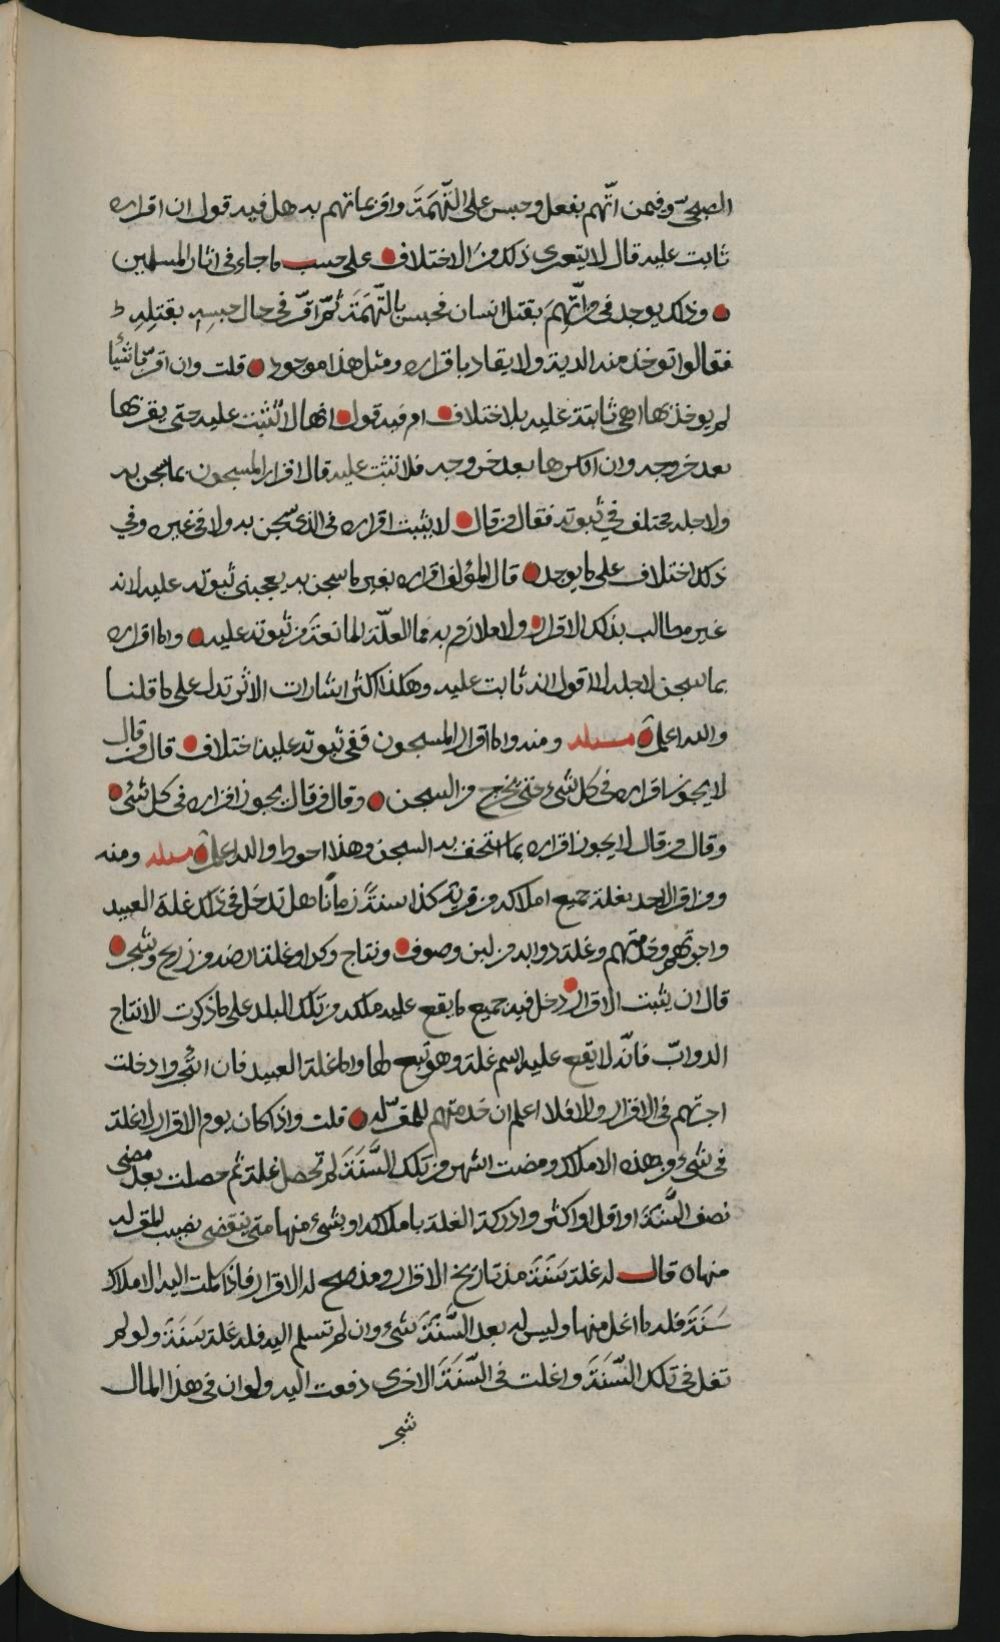 الصبحي وفيمن اتّهم بفعل وحبس على التّهَمَةَ واقر بما اتهم به هل فيه قول ان اقراره
ثابت عليه قال لا يتعرى ذلك من الاختلاف على حسب ما جاء في اثار المسلمين
وذلك يوجد في من اتّهِمَ بقتل انسان فحبس بالتّهَمَةَ ثُمّ اقرّ في حال حبسِهِ بقتلِهِ
فقالوا تؤخذ منه الدية ولا يقاد باقراره ومثل هذا موجود قلت وان اقرّ باشياء
لم يوخذ بها اهي ثابتة عليه بلا اختلاف ام فيه قول انها لا تثبت عليه حتى يقر بها
بعد خروجه وان انكرها بعد خروجه فلا تثبت عليه قال اقرار المسجون بما سجن به
ولاجله مختلف في ثبوته فقال من قال لا يثبت اقراره في الذي سجن به ولا في غيره وفي
ذلك اختلاف على ما يوجد قال المؤلف اقراره بغير ما سجن به يعجبني ثبوته عليه لانه
غير مطالب بذلك الاقرار ولا ملازم به فما العلّة المانعة من ثبوته عليه واما اقراره
بما سجن لاجله لا اقول انه ثابت عليه وهكذا اكثر اشارات الاثر تدل على ما قلنا
والله اعلم مسئله ومنه واما اقرار المسجون ففي ثبوته عليه اختلاف قال من قال
لا يجوز اقراره في كل شيء حتى يخرج من السجن وقال من قال يجوز اقراره في كل شيء
وقال من قال لا يجوز اقراره بما استحق به السجن وهذا احوط والله اعلم مسئله ومنه
ومن اقر لاحد بغلة جميع املاكه من قرية كذا سنةً زمانًا هل تدخل في ذلك غلة العبيد
واجرتهم وخدمتهم وغلة دوابه من لبن وصوف ونتاج وكرا وغلة ارضه من زرع وشجر
قال ان يثبت الاقرار دخل فيه جميع ما يقع عليه ملكه من تلك البلد على ما ذكرت الا نتاج
الدوابّ فانّه لا يقع عليه اسم غلة وهو تبع لها واما غلة العبيد فان اتجروا دخلت
اجرتهم في الاقرار والا فلا اعلم ان خدمتهم للمقرّ له قلت واذا كان يوم الاقرار لا غلة
في شيء من هذه الاملاك ومضت اشهر من تلك السَّنَةَ لم تحصل غلة ثم حصلت بعد مضى
نصف السَّنَةَ او اقل او اكثر وادركة الغلة باملاكه او بشيء منها متى ينقضى نصيب المقر له
منها قال له غلة سَنَةَ مذ تاريخ الاقرار ومذ صح له الاقرار فاذا كملت اليه الاملاك
سَنَةَ فله ما اغل منها وليس له بعد السَّنَةَ شيء وان لم تسلم اليه فله غلة سَنَةَ ولو لم
تغل في تلك السَّنَةَ واغلت في السَّنَةَ الاخرى دفعت اليه ولو ان في هذا المال
شجر